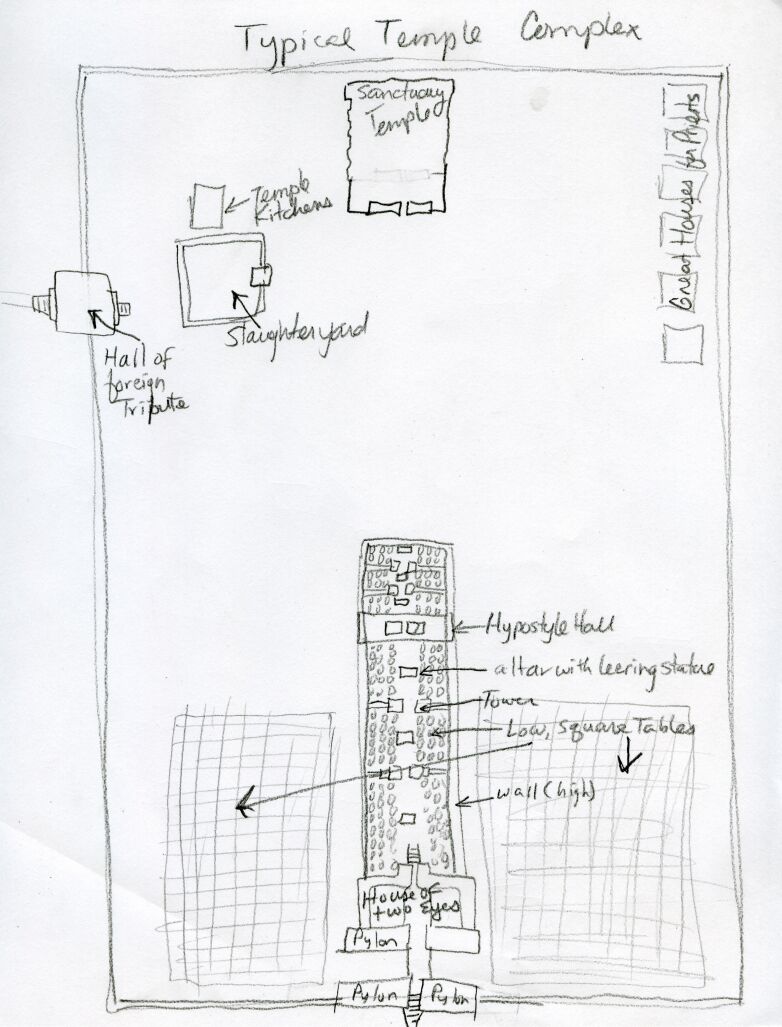 Typical Temple Complex
Sanctuary
Temple
Great Houses for Priests
Temple
Kitchens
Slaughteryard
Hall of
foreign
Tribute
Hypostyle Hall
altar with leering statue
Tower
Low, Square Tables
wall (high)
House of
two Eyes
Pylon
Pylon
Pylon